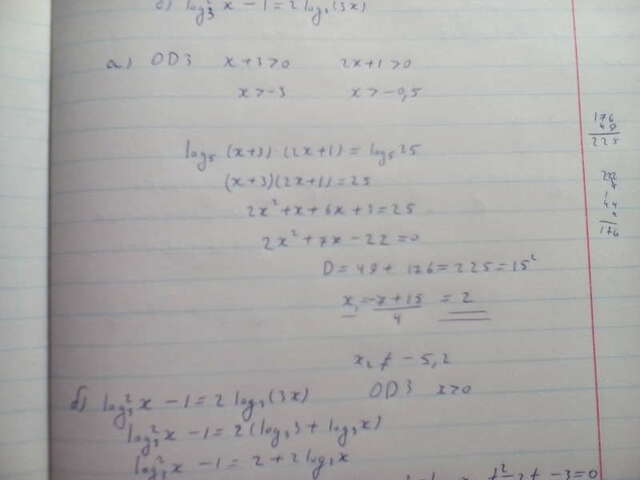 c) log₃² x - 1 = 2 log₃ (3x)
a) ОДЗ x+3>0 2x+1>0
x>-3 x>-0,5
log₅ (x+3)·(2x+1) = log₅ 25
(x+3)(2x+1)=25
2x²+x+6x+3=25
2x²+7x-22=0
D=49+176=225=15²
x₁=-7+15/4 = 2
x₂ ≠ -5,2
б) log₃² x - 1 = 2 log₃ (3x) ОДЗ x>0
log₃² x - 1 = 2(log₃ 3 + log₃ x)
log₃² x - 1 = 2+2 log₃ x
t²-2t-3=0
176
49
225
44
176